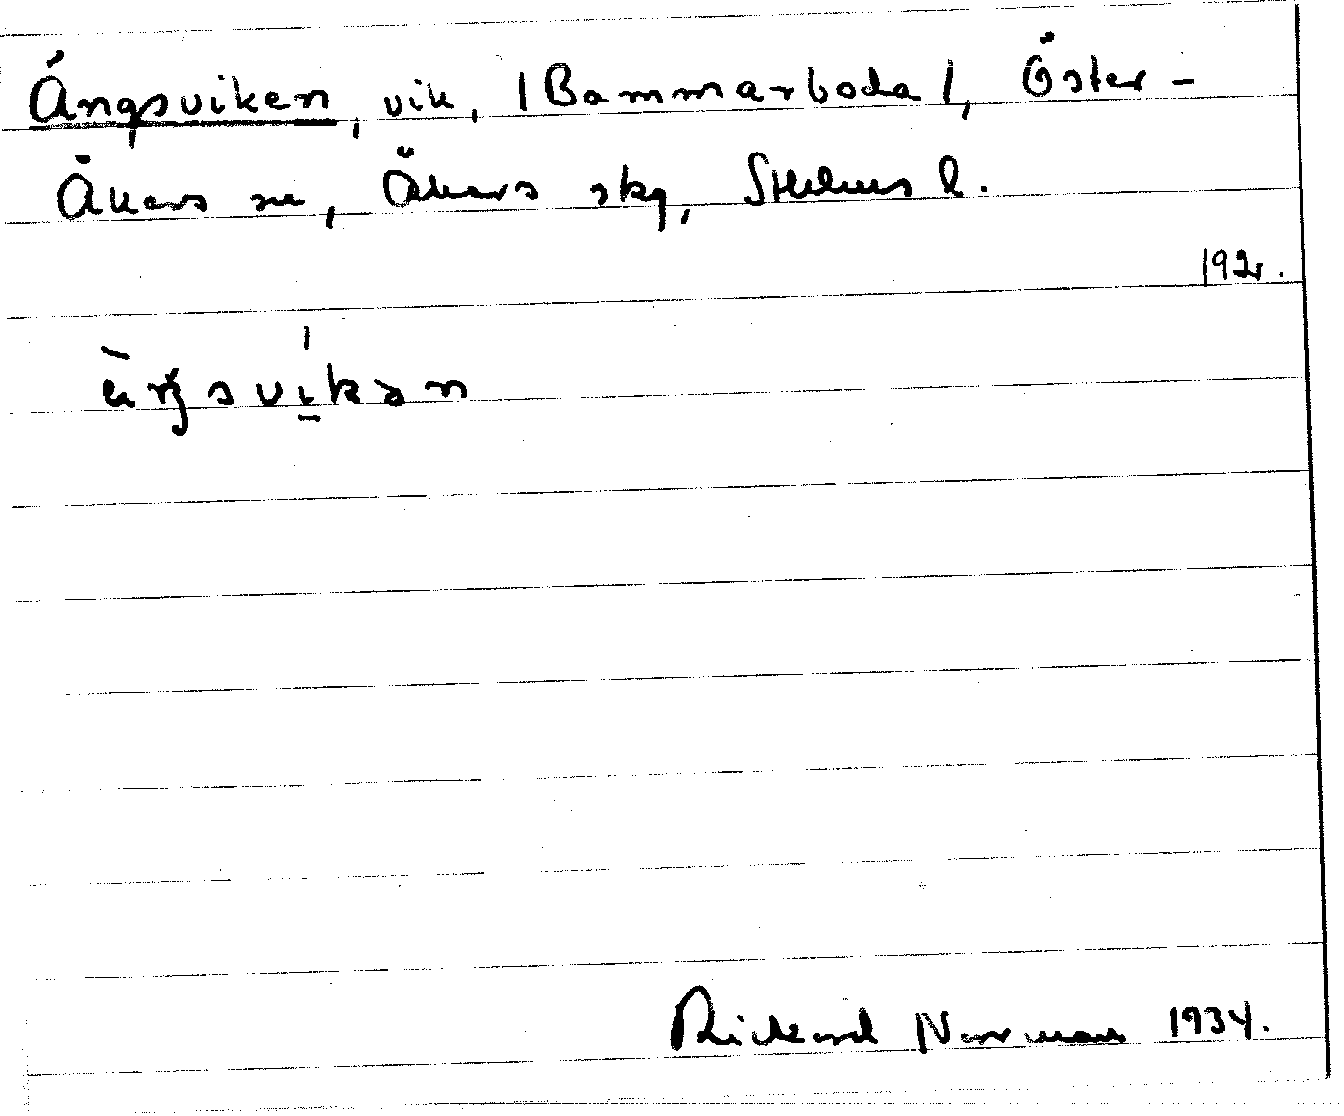 Ängsviken, vik, /Bammarboda/, Öster-
Åkers sn, Åkers skg, Sthlms l.
192r.
Rickard Norman 1934.